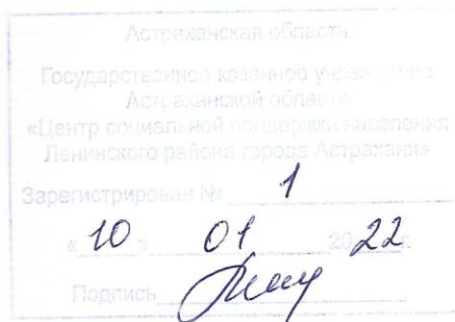 Астраханская область
Государственное казенное учреждение
Астраханской области
«Центр социальной поддержки населения
Ленинского района города Астрахани»
Зарегистрирован № 1
«10» 01 2022 г.
Подпись